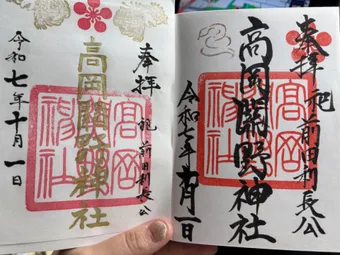 奉拝 祀 前田利長公
高岡關野神社
令和七年十月一日
奉拝
祀 前田利長公
高岡關野神社
令和七年十月一日